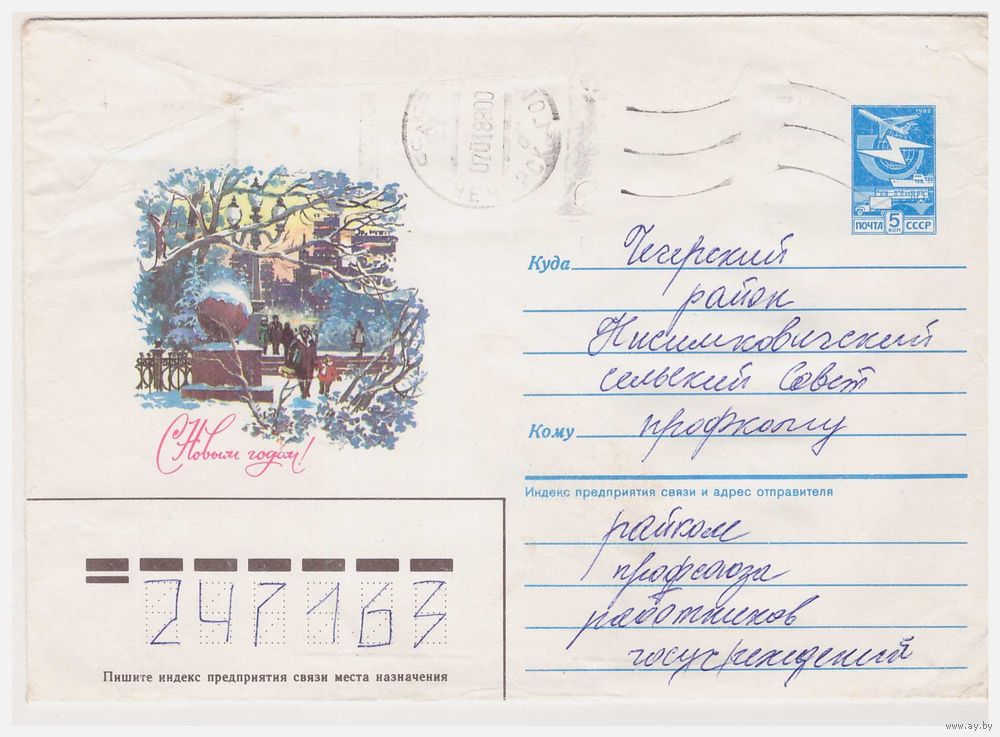 07018800
1982
ПОЧТА 5 КОП СССР
Куда Чечерский
район
Нисимковичский
сельский Совет
Кому профкому
Индекс предприятия связи и адрес отправителя
райком
профсоюза
работников
госучреждений
С Новым годом!
247163
Пишите индекс предприятия связи места назначения
www.ay.by